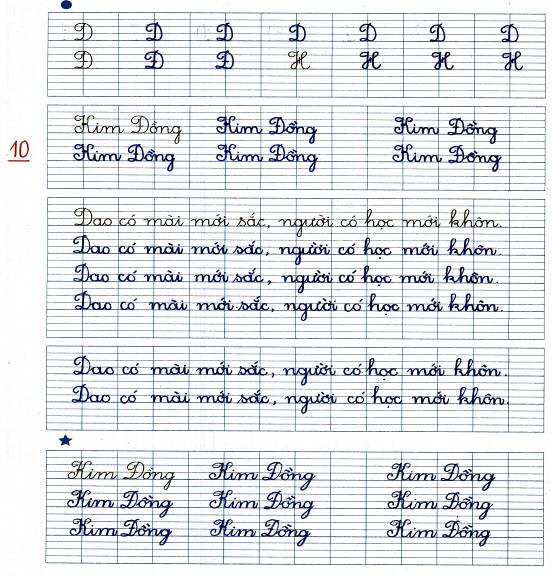 D D D D D D D
Đ Đ Đ K K K K
Kim Đồng Kim Đồng Kim Đồng
10
Kim Đồng Kim Đồng Kim Đồng
Dao có mài mới sắc, người có học mới khôn.
Dao có mài mới sắc, người có học mới khôn.
Dao có mài mới sắc, người có học mới khôn.
Dao có mài mới sắc, người có học mới khôn.
Dao có mài mới sắc, người có học mới khôn.
Dao có mài mới sắc, người có học mới khôn.
Kim Đồng Kim Đồng Kim Đồng
Kim Đồng Kim Đồng Kim Đồng
Kim Đồng Kim Đồng Kim Đồng